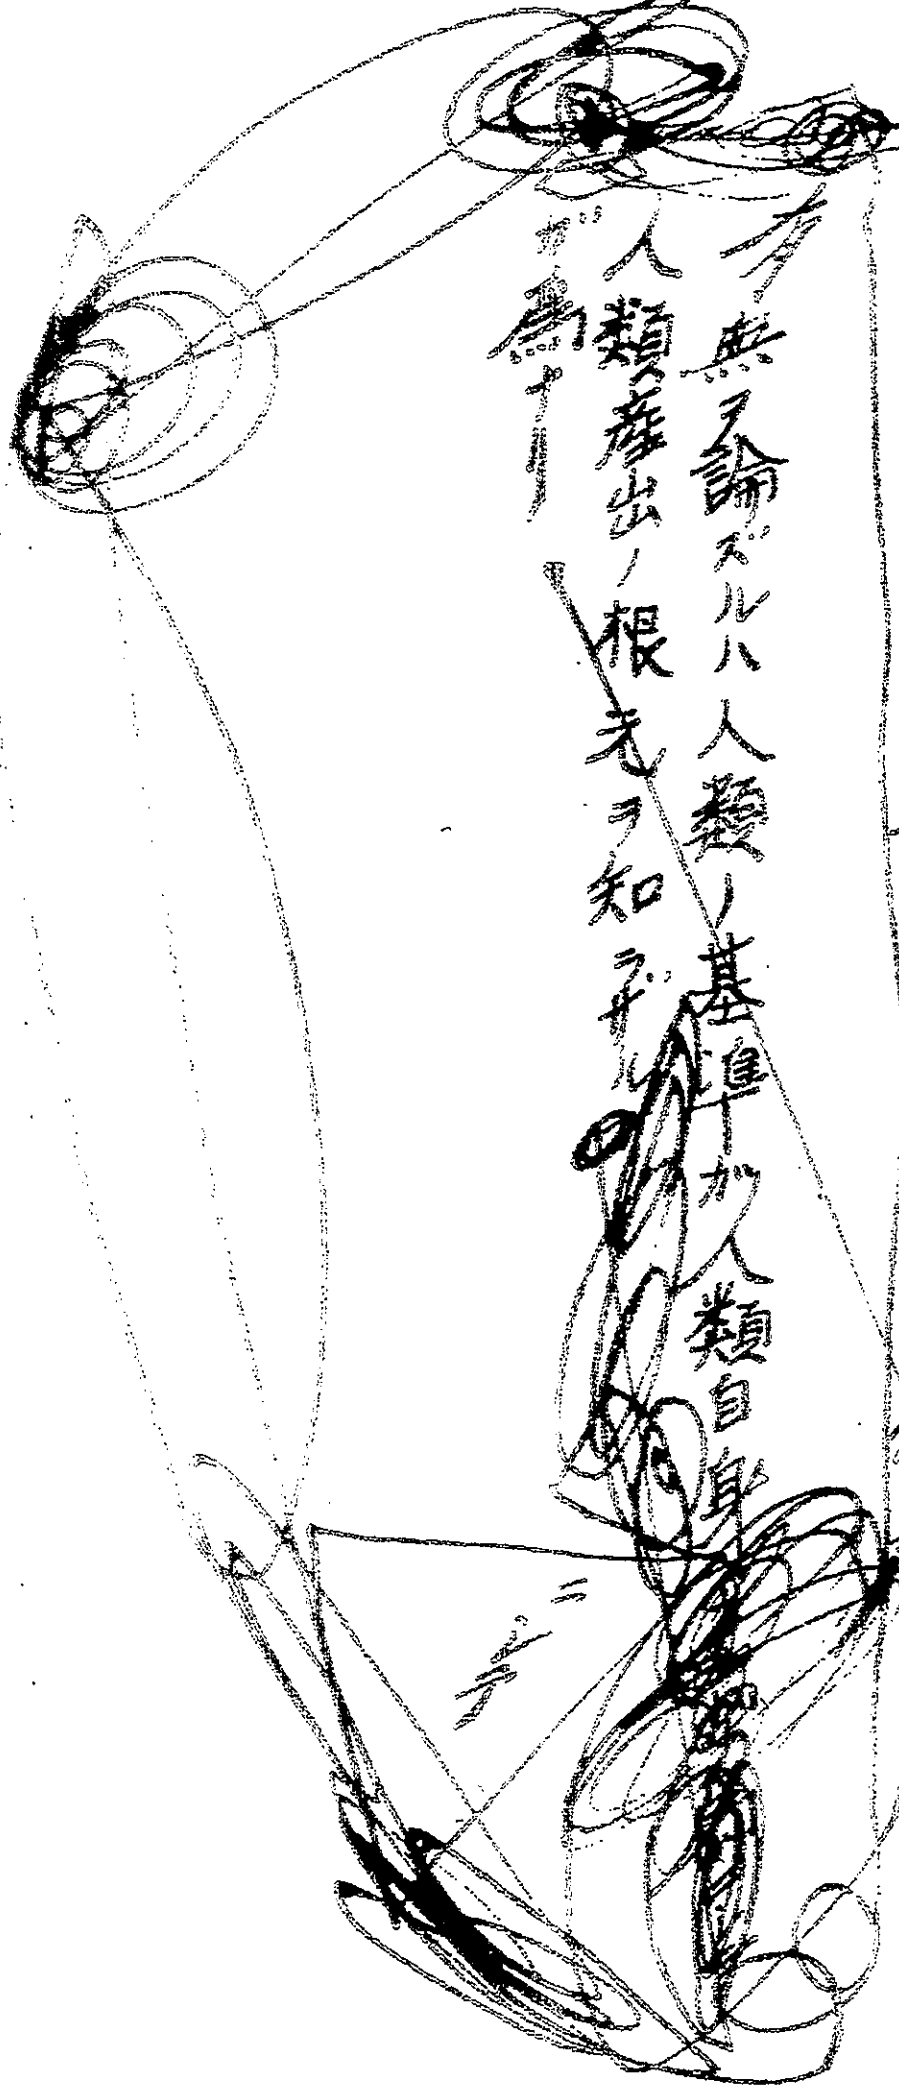 有無ヲ論ズルハ人類ノ基準ガ人類自身
人類産出ノ根元ヲ知ラザル
ガ為ナリ
ニシテ